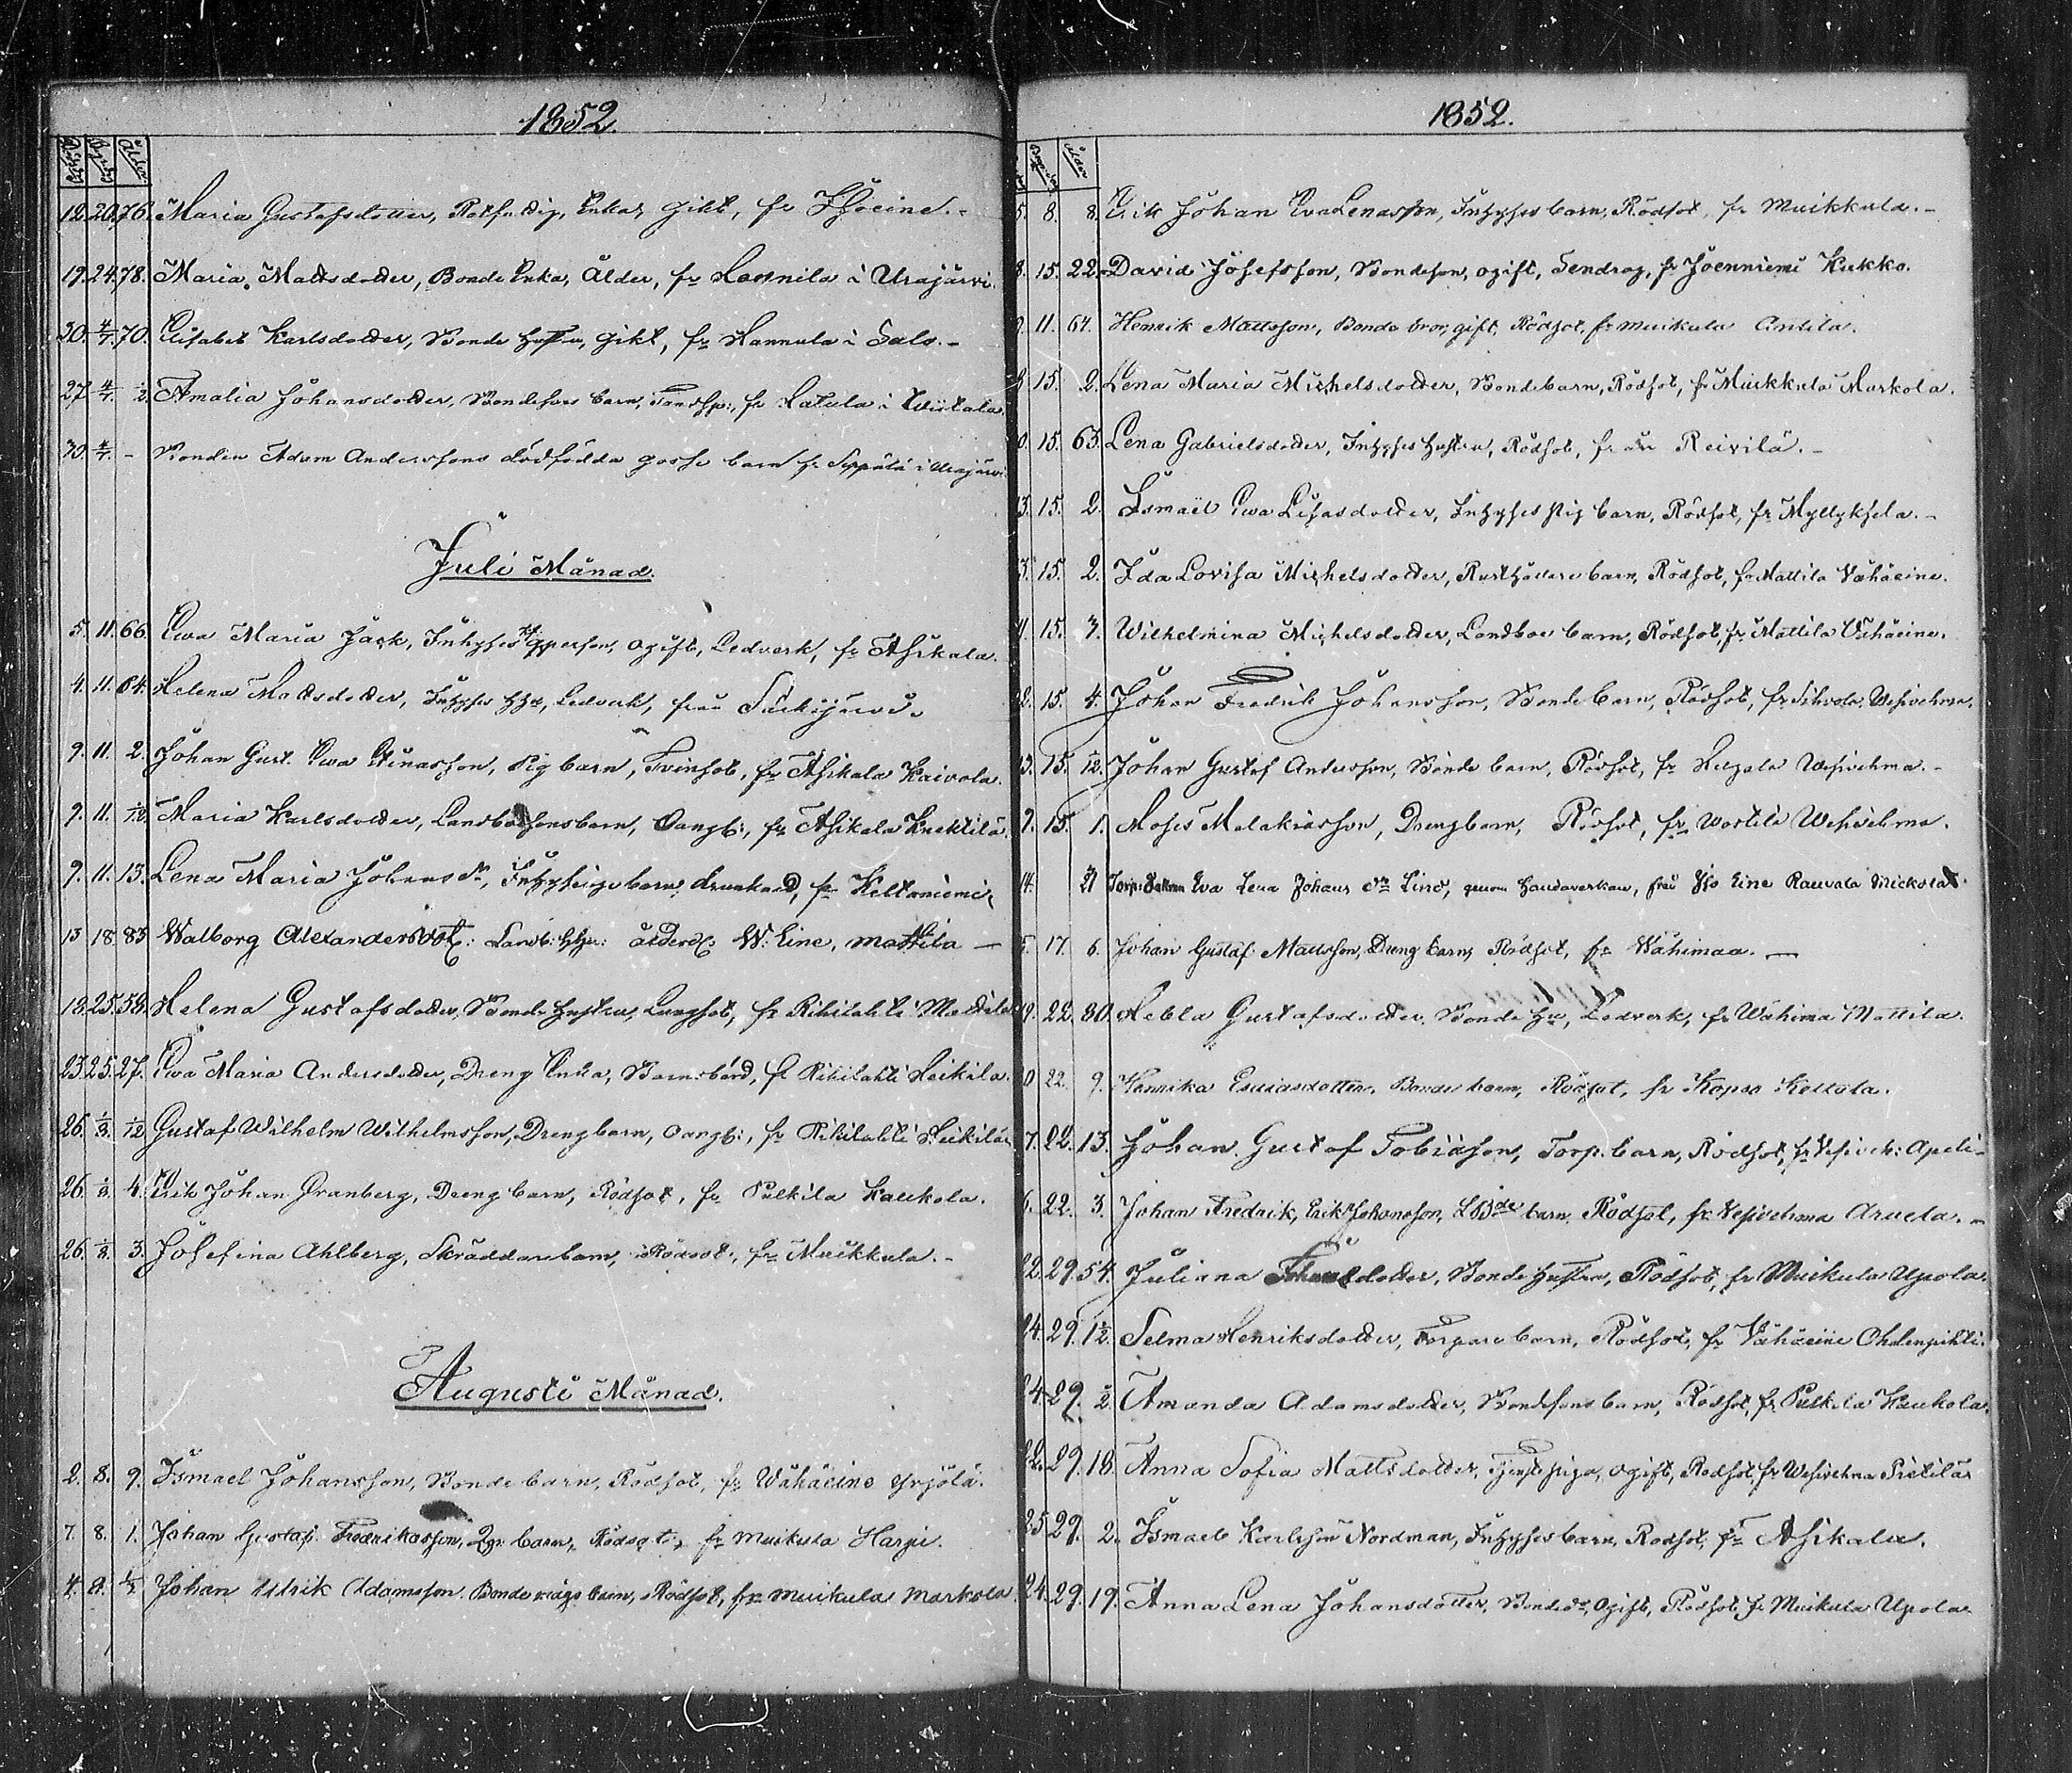 1852.
Ålder
12. 20. 76. Maria Gustafsdotter, Enka, gikt, fr
19. 24. 78. Maria Mattsdotter, Bonde Enka, Ålder, fr i Urajärvi.
30. 4/7. 70. Elisabet Karlsdotter, Bonde Hustru, gikt, fr Hannula i Salo. -
27. 4/7. 1/2. Amalia Johansdotter, Bondesons barn, fr Latula i
30. 4/7. - Bonden Adam Anderssons dödfödda gosse barn fr Seppälä i Urajärvi
Juli Månad.
5. 11. 66. Ewa Maria Jäck, Inhyses ogift, Ledverk, fr Asikala.
4. 11. 64. Helena Mattsdotter, Inhyses Ledverk, från Särkijärvi.
9. 11. 2. Johan Gust. Ewa Stinasson, Pig barn, Tvinsot, fr Asikala Kaivola.
9. 11. 1/12. Maria Karlsdotter, Landbondsonsbarn, fr Asikala Knektilä.
9. 11. 13. Lena Maria Johansdr, barn, drunknad, fr Keltaniemi.
13 18 83 Walborg Alexandersdott: Landb: W: Eine, Mattila —
18. 25. 58. Helena Gustafsdotter, Bonde Hustru, Lungsot, fr Rihilahti Mattila
23. 25. 27. Ewa Maria Andersdotter, Dreng Enka, Barnsbörd, fr Rihilahti Heikilä.
26. 1/8. 1/12 Gustaf Wilhelm Wilhelmsson, Drengbarn, fr Rihilahti Heikilä
26. 1/8. 4. Erik Johan Granberg, Dreng barn, Rödsot, fr Pulkila Kaukola.
26. 1/8. 3. Josefina Ahlberg, Skräddarebarn, Rödsot, fr Muikkula. -
Augusti Månad.
2. 8. 9. Ismael Johansson, Bonde barn, Rödsot, fr Wähäeine Yrjölä.
7. 8. 1. Johan Gustaf Fredriksson, barn, Rödsot, fr Muikula Harju.
4. 8. 1/2 Johan Ulrik Adamsson. Bonde mågs barn, Rödsot, fr Muikula Markola
1852.
Ålder
5. 8. 8. Erik Johan EvaLenasson, Inhyses barn, Rödsot, fr Muikkula. -
8. 15. 22. David Josefsson, Bondeson, ogift, Sendrag, fr Joenniemi Kukko.
9. 11. 64. Henrik Mattsson, Bonde bror, gift, Rödsot, fr Muikula Antila.
8. 15. 2. Lena Maria Michelsdotter, Bonde barn, Rödsot, fr Muikkula Markola.
0. 15. 63. Lena Gabrielsdotter, Inhyses Hustru, Rödsot, från Reivilä. -
13. 15. 2. Ismael Ewa Lisasdotter, Inhyses pig barn, Rödsot, fr Myllykselä. -
13. 15. 2. Ida Lovisa Michelsdotter, Rusthållare barn, Rödsot, fr Mattila Vähäeine.
11. 15. 3. Wilhelmina Michelsdotter, Landboe barn, Rödsot, fr Mattila Vähäeine.
12. 15. 4. Johan Fredrik Johansson, Bonde barn, Rödsot, fr Sihvola Wesivehma.
13. 15. 1/12. Johan Gustaf Andersson, Bonde barn, Rödsot, fr Wesivehma. -
9. 15. 1. Moses Malakiasson, Drengbarn, Rödsot, fr Wesivehma.
14. 21 Torp: Eva Lena Johans dr Lind, genom handaverkan, från W:o Eine Rauvala
5. 17. 6. Johan Gustaf Mattsson, Dreng barn, Rödsot, fr Wähimaa. —
19. 22. 80. Hebla Gustafsdotter, Bonde Ledverk, fr Wähima Mattila.
20 22. 9. Henrika Esaiasdotter, Bonde barn, Rödsot, fr Kopso Kellola.
7. 22. 13. Johan Gustaf Tobiasson, Torp. barn, Rödsot, fr Vesiveh: Apeli-
6. 22. 3. Johan Fredrik, Erik Johansson, barn, Rödsot, fr Vesivehma Aruela. -
22. 29. 54. Juliana dotter, Bonde Hustru, Rödsot, fr Muikula Upola.
24. 29. 1 1/2. Selma Henriksdotter, Torpare barn, Rödsot, fr Vähäeine
24. 29. 1/2 Amanda Adamsdotter, Bondesons barn, Rödsot, fr Pulkila Kaukola.
22. 29. 18. Anna Sofia Mattsdotter, piga, ogift, Rödsot, fr Wesivehma Pietilä
25 29. 2. Ismael Karlsson Nordman, Inhyses barn, Rödsot, fr Asikala.
24. 29. 19. Anna Lena Johansdotter, Bondedr, Ogift, Rödsot, fr Muikula Upola